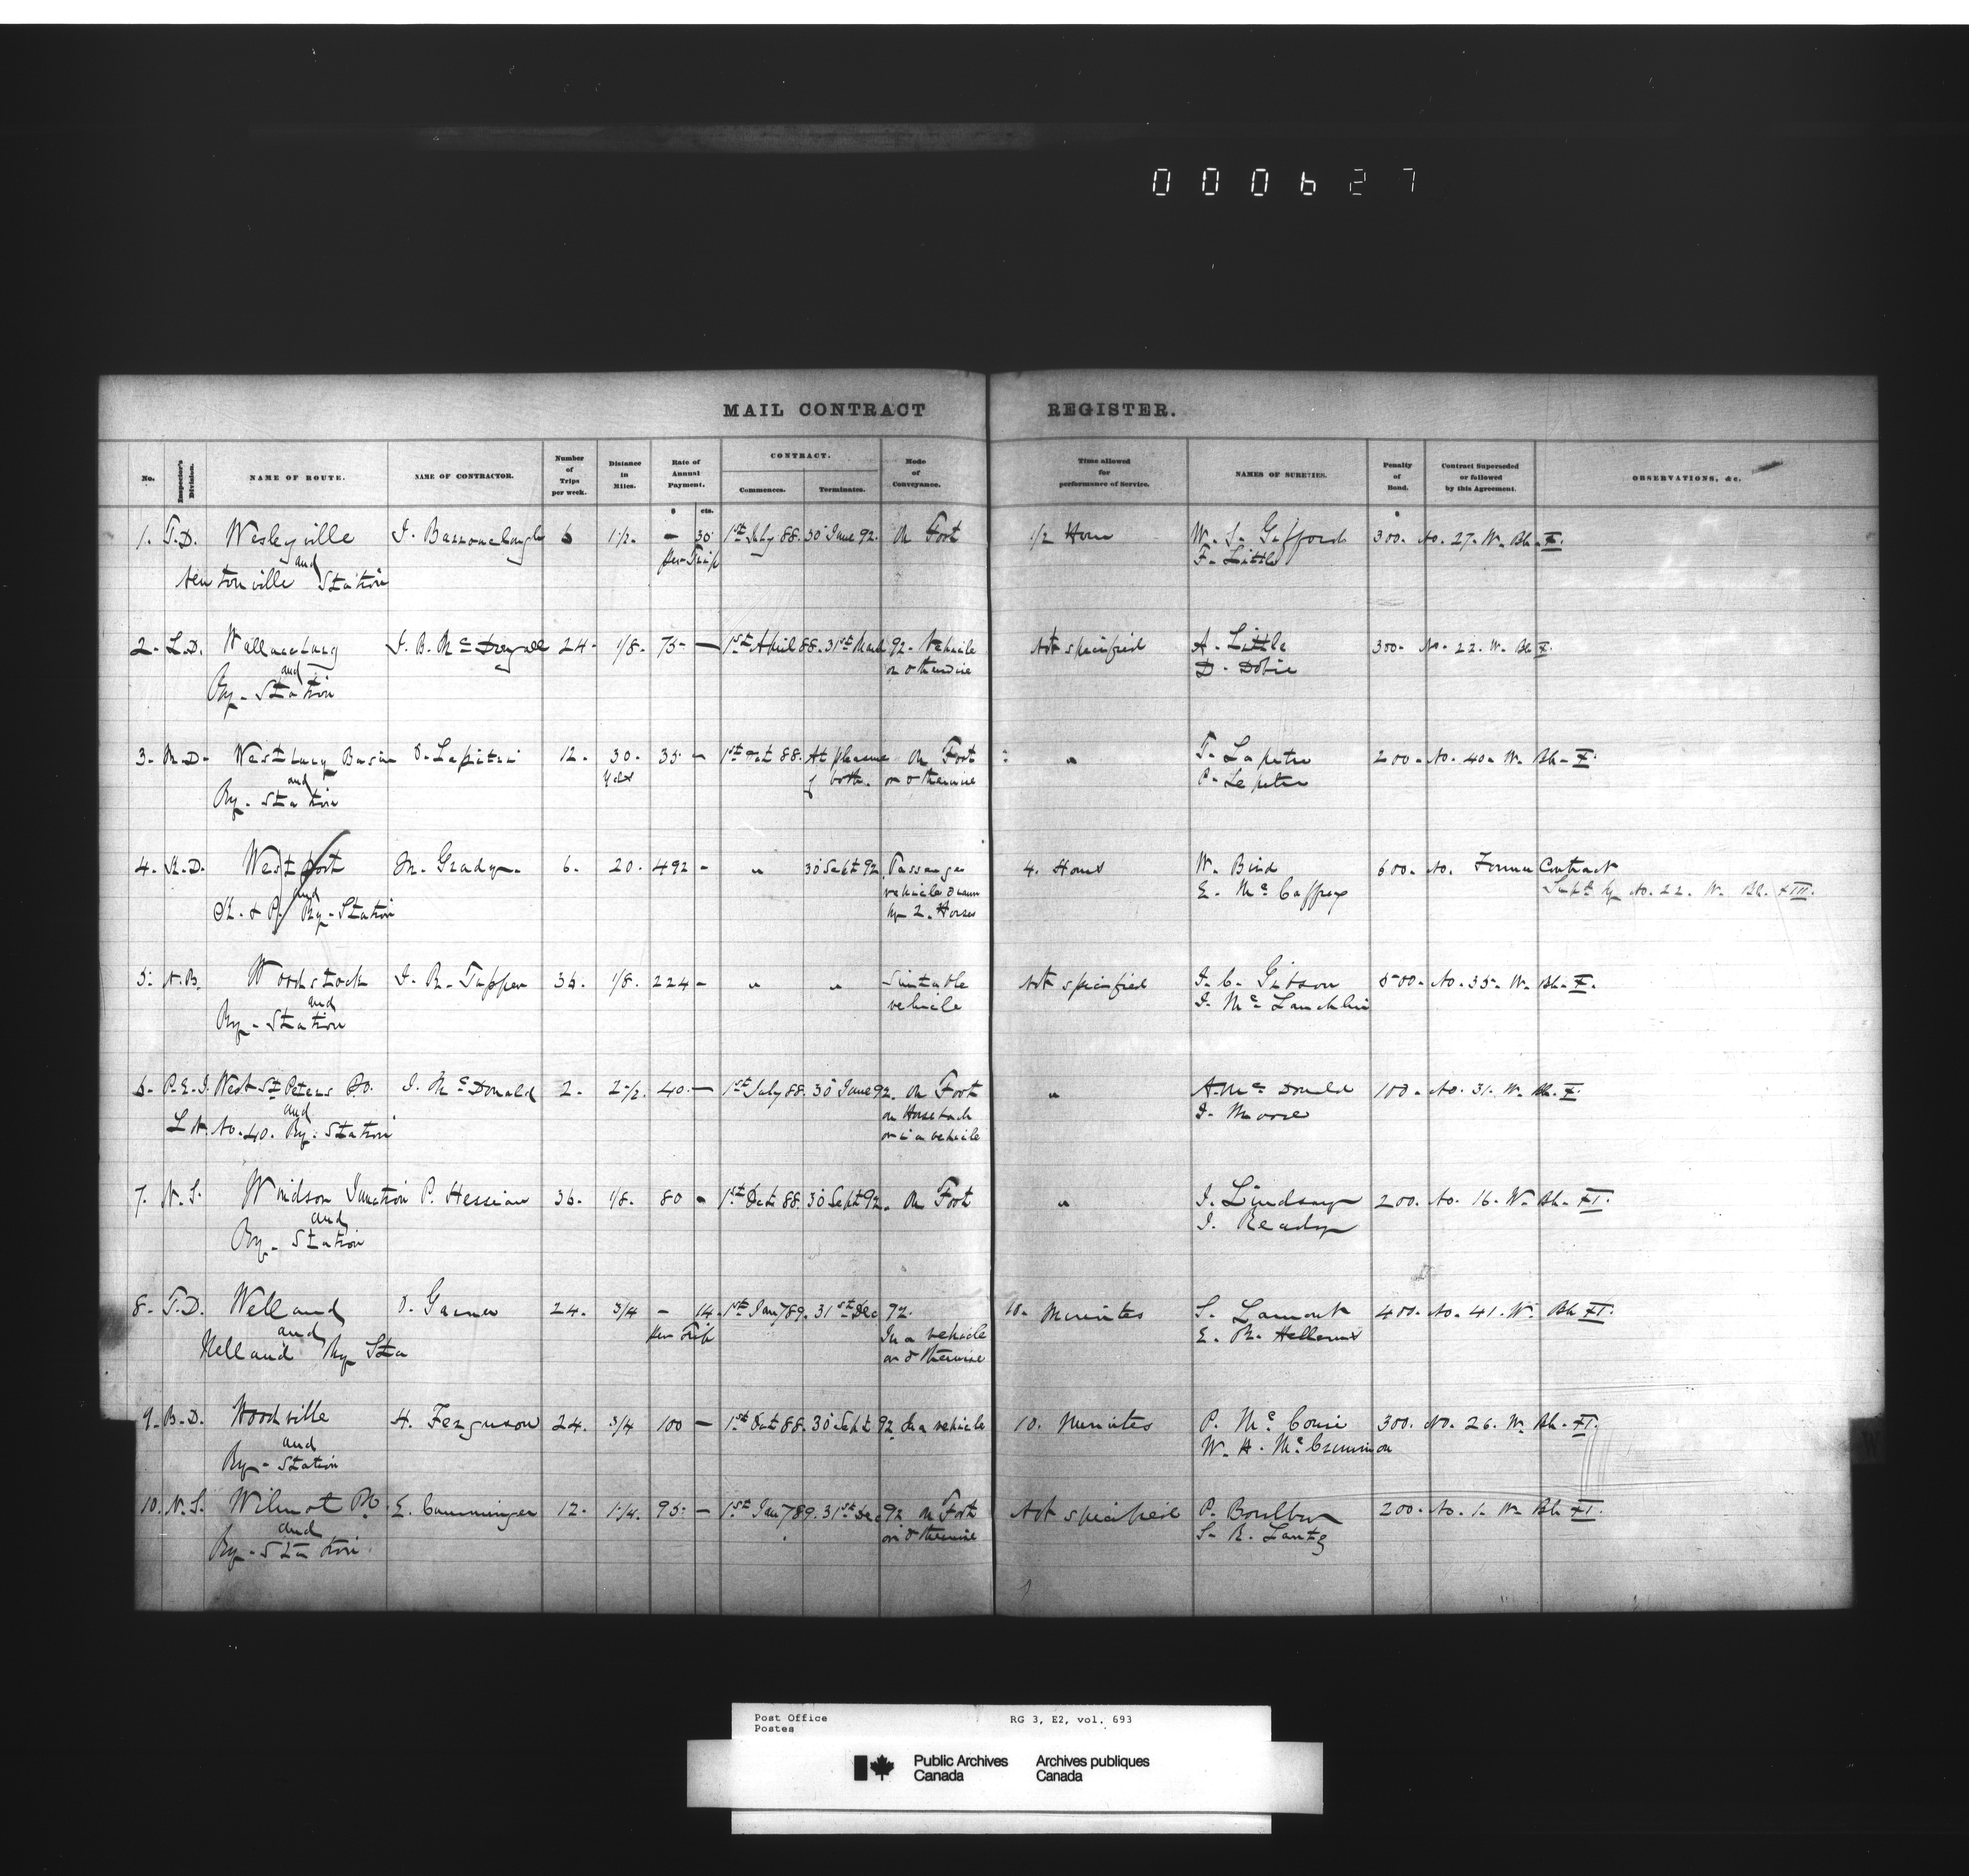 000627
MAIL CONTRACT REGISTER.
No. Inspector's Division. NAME OF ROUTE. NAME OF CONTRACTOR. Number of Trips per week. Distance in Miles. Rate of Annual Payment. CONTRACT. Commences. Terminates. Mode of Conveyance. Time allowed for performance of Service. NAMES OF SURETIES. Penalty of Bond. Contract Superseded or followed by this Agreement. OBSERVATIONS, &c.
$ cts.
1. T.D. Wesleyville J. 6 1 1/2. — 30 1st July 88. 30 June 92. On Foot 1/2 Hour W. S. Gifford 300. No. 27. W. Bk. X.
and per Trip F. Little
Newtonville Station
2. L.D. Wallaceburg J. B. McDougall 24. 1/8. 75 — 1st April 88. 31st March 92. Vehicle Not specified A. Little 300. No. 22. W. Bk X.
and or otherwise D. Dobie
Ry. Station
3. M.D. Westbury Basin 12. 30. 35 — 1st Oct 88. At pleasure On Foot " 200. No. 40. W. Bk. X.
and yds of both. or otherwise
Ry. Station
4. K.D. Westport M. Grady. 6. 20. 492 — " 30 Sept 92. Passenger 4. Hours W. Bird 600. No. Former Contract
and vehicle drawn E. McCaffrey Supd by No. 22. W. Bk. XIII.
K. & P. Ry. Station by 2. Horses
5. N.B. Woodstock J. R. Tupper 36. 1/8. 224 — " " Suitable Not specified J. C. Gibson 500. No. 35. W. Bk. X.
and vehicle J. McLauchlin
Ry. Station
6. P.E.I. West St Peters P.O. J. McDonald 2. 2 1/2. 40 — 1st July 88. 30 June 92. On Foot " A. McDonald 100. No. 31. W. Bk. X.
and on Horseback J. Moore
Lot No. 40. Ry. Station or in a vehicle
7. N.S. Windsor Junction P. Hessian 36. 1/8. 80 — 1st Oct 88. 30 Sept 92. On Foot " J. Lindsay 200. No. 16. W. Bk. XI.
and J. Ready
Ry. Station
8. T.D. Welland D. Garner 24. 3/4 — 14. 1st Jany 89. 31st Dec 92. 10. Minutes S. Lamont 400. No. 41. W. Bk XI.
and per Trip In a vehicle E. R. Hellems
Welland Ry Sta or otherwise
9. B.D. Woodville H. Ferguson 24. 3/4 100 — 1st Oct 88. 30 Sept 92. In a vehicle 10. Minutes P. 300. No. 26. W. Bk. XI.
and W. H. McCrimmon
Ry. Station
10. N.S. Wilmot P.O. E. Cumminger 12. 1 1/4. 95 — 1st Jany 89. 31st Dec 92 On Foot Not specified P. 200. No. 1. W. Bk XI.
and or otherwise S. R. Lantz
Ry. Station
Post Office RG 3, E2, vol. 693
Postes
Public Archives Archives publiques
Canada Canada